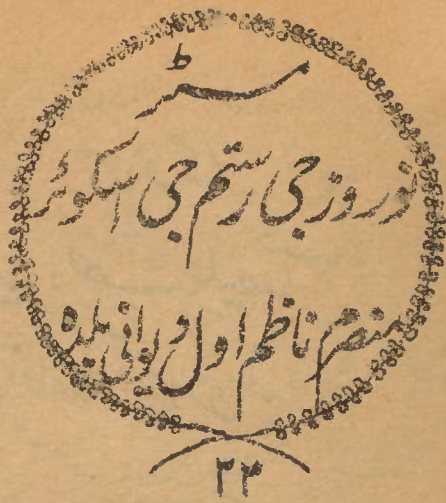 مسٹر
نوروزجی رستم جی اسکوئر
منصرم ناظم اول دیوانی بلدہ
۲۳